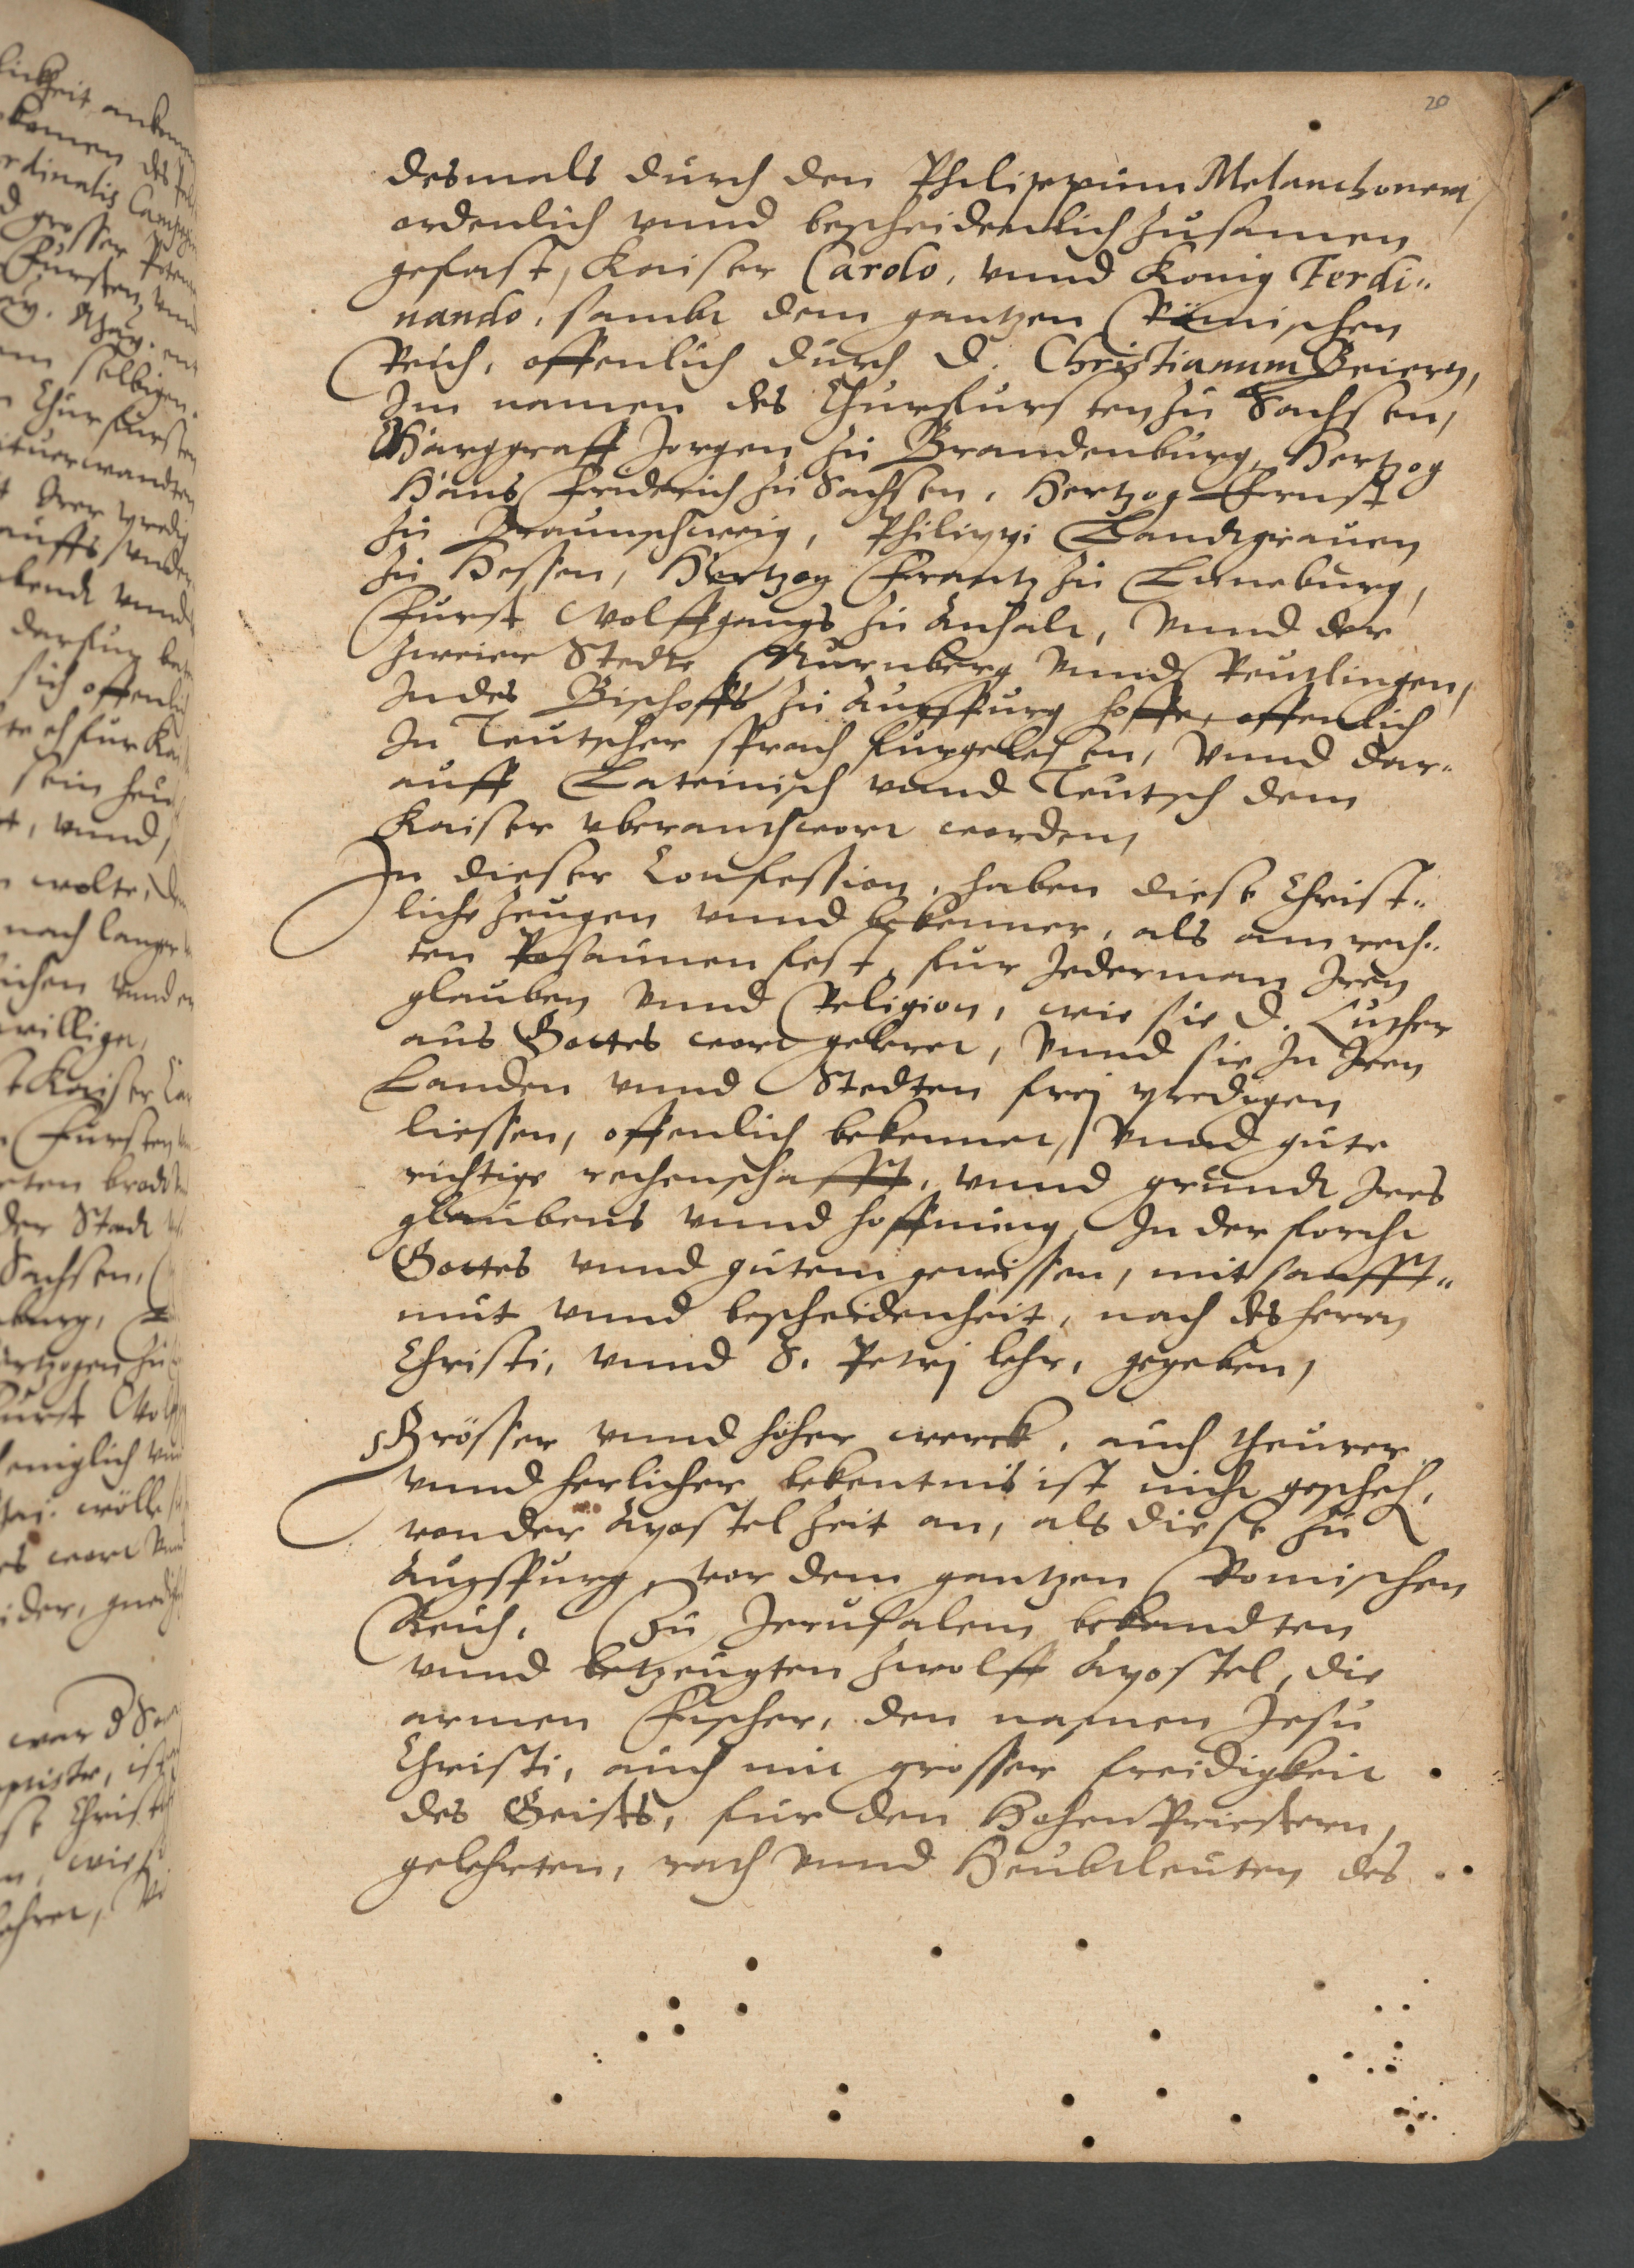 20
desmals durch den Philippum Melanchonem,
ordenlich vnnd bescheidentlich zusamen
gefast, Kaiser Carolo, vnnd König Ferdi„
nando, sambt dem gantzen Römischen
Reich, offenlich durch D. Christianum Beiern,
Im namen des Churfursten zu Sachsen,
Marggraff Jorgen zu Brandenburg, Hertzog
Hans Friderich zu Sachsen, Hertzog Ernst
zu Braunschweig, Philippi Landtgrauen
zu Hessen, Hertzog Frantz zu Luneburg,
Furst Wolffgangs zu Anhalt, Vnnd der
zweier Stedte Nurnberg Vnnd Reutlingen,
In des Bischoffs zu Augspurg hoffe, offenlich
In Teutscher sprach furgelesen, Vnnd dar„
auff Lateinisch vnnd Teutsch dem
Kaiser vberanthwort worden,
In dieser Confession, haben diese Christ„
liche Zeugen vnnd bekenner, als am rech„
ten Posaunen fest, fur Jederman Iren
glauben Vnnd Religion, wie sie D. Luther
aus Gottes wort geleret, Vnnd sie In Iren
Landen vnnd Stedten frej predigen
liessen, offenlich bekennet, Vnnd gute
richtige rechenschafft, vnnd grundt Ires
glaubens vnnd hoffnung, In der forcht
Gottes vnnd gutem gewissen, mit sanfft„
mut vnnd bescheidenheit, nach des herrn
Christi, vnnd S. Petrj lehr, gegeben,
Grösser vnnd höher werck, auch theurer
vnnd herlicher bekentnis ist nicht gescheh,
von der Apostel Zeit an, als diese zu
Augspurg, vor dem gantzen Romischen
Reich, Zu Jerusalem bekandten
vnnd betzeugten zwolff Apostel, die
armen Fischer, den namen Jesu
Christi, auch mit grosser freidigkeit
des Geists, fur den Hohen Priestern,
gelehrten, rath Vnnd Heubtleuten des